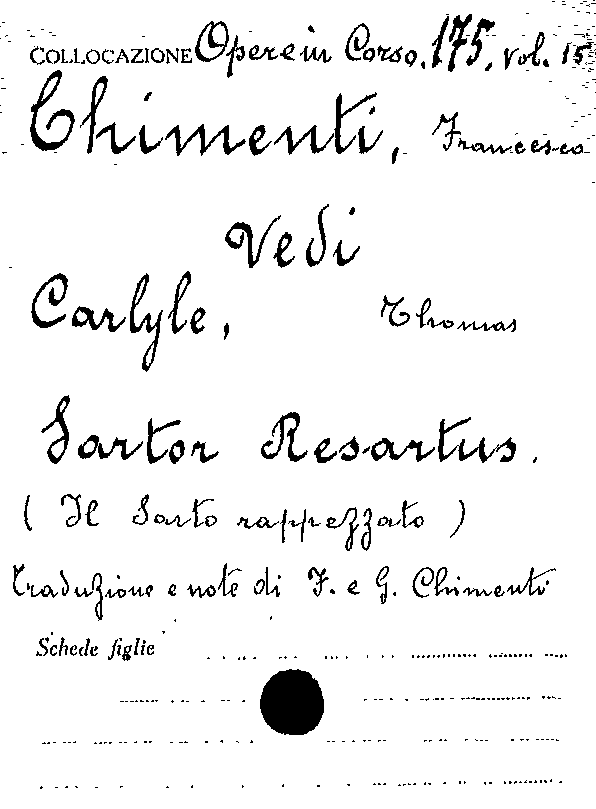 COLLOCAZIONE Opere in Corso. 175. Vol. 15
Chimenti, Francesco
Vedi
Carlyle, Thomas
Sartor Resartus.
( Il Sarto rappezzato )
Traduzione e note di F. e G. Chimenti
Schede figlie